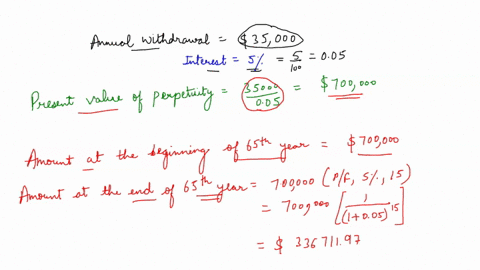 Annual withdrawal = $35,000
Interest = 5% = 5/100 = 0.05
Present value of perpetuity = 35000/0.05 = $700,000
Amount at the beginning of 65th year = $700,000
Amount at the end of 65th year = 700000 (P/F, 5%, 15)
= 700,000 [1/(1+0.05)^15]
= $ 336711.97